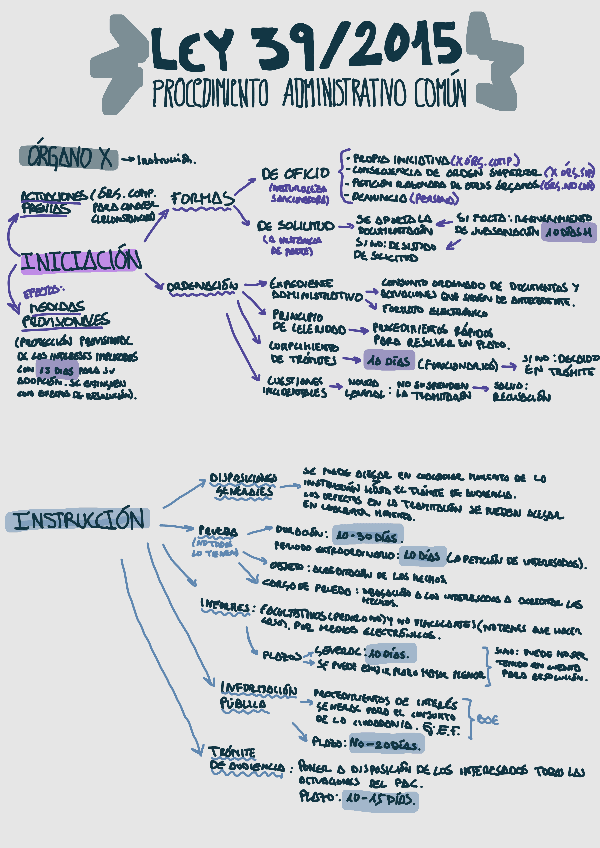 LEY 39/2015
PROCEDIMIENTO ADMINISTRATIVO COMÚN
ÓRGANO X → Instrucción.
ACTUACIONES PREVIAS (ÓRG. COMP. PARA CONOCER CIRCUNSTANCIAS)
INICIACIÓN
EFECTOS:
MEDIDAS
PROVISIONALES
(PROTECCIÓN PROVISIONAL
DE LOS INTERESES IMPLICADOS
CON 15 DÍAS PARA SU
ADOPCIÓN. SE EXTINGUEN
CON EFECTOS DE RESOLUCIÓN).
FORMAS
DE OFICIO
(NATURALEZA
SANCIONADORA)
- PROPIA INICIATIVA (X ÓRG. COMP.)
- CONSECUENCIA DE ORDEN SUPERIOR (X ÓRG. SUP)
- PETICIÓN RAZONADA DE OTROS ÓRGANOS (ÓRG. NO COMP)
- DENUNCIA (PERSONA)
DE SOLICITUD
(A INSTANCIA
DE PARTE)
SE APORTA LA
DOCUMENTACIÓN
SI NO: DESISTIDO
DE SOLICITUD
SI FALTA: REQUERIMIENTO
DE SUBSANACIÓN 10 DÍAS H
ORDENACIÓN
EXPEDIENTE
ADMINISTRATIVO
CONJUNTO ORDENADO DE DOCUMENTOS Y
ACTUACIONES QUE SIRVEN DE ANTECEDENTE.
FORMATO ELECTRÓNICO
PRINCIPIO
DE CELERIDAD
PROCEDIMIENTOS RÁPIDOS
PARA RESOLVER EN PLAZO.
CUMPLIMIENTO
DE TRÁMITES
10 DÍAS (FUNCIONARIOS)
SI NO: DECAIDO
EN TRÁMITE
CUESTIONES
INCIDENTALES
NORMA
GENERAL
: NO SUSPENDEN
LA TRAMITACIÓN
SALVO:
RECUSACIÓN
INSTRUCCIÓN
DISPOSICIONES
GENERALES
SE PUEDE ALEGAR EN CUALQUIER MOMENTO DE LA
INSTRUCCIÓN HASTA EL TRÁMITE DE AUDIENCIA.
LOS DEFECTOS EN LA TRAMITACIÓN SE PUEDEN ALEGAR
EN CUALQUIER MOMENTO.
PRUEBA
(NO TODOS
LO TIENEN)
DURACIÓN: 10-30 DÍAS.
PERIODO EXTRAORDINARIO: 10 DÍAS (A PETICIÓN DE INTERESADOS).
OBJETO: ACREDITACIÓN DE LOS HECHOS.
CARGA DE PRUEBA: OBLIGACIÓN A LOS INTERESADOS A ACREDITAR LOS
HECHOS.
INFORMES: FACULTATIVOS (PEDIR O NO) Y NO VINCULANTES (NO TIENES QUE HACER
CASO). POR MEDIOS ELECTRÓNICOS.
PLAZOS
GENERAL: 10 DÍAS.
SE PUEDE EXIGIR PLAZO MAYOR MENOR
SI NO: PUEDE NO SER
TENIDO EN CUENTA
PARA RESOLUCIÓN.
INFORMACIÓN
PÚBLICA
PROCEDIMIENTOS DE INTERÉS
GENERAL PARA EL CONJUNTO
DE LA CIUDADANÍA.
BOE
PLAZO: NO-20 DÍAS.
TRÁMITE
DE AUDIENCIA: PONER A DISPOSICIÓN DE LOS INTERESADOS TODAS LAS
ACTUACIONES DEL PAC.
PLAZO: 10-15 DÍAS.